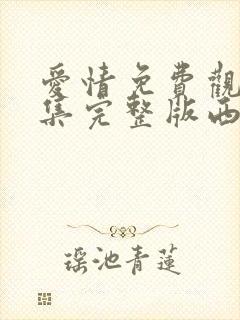 愛情免費觀
集完整版西
瑶池青蓮